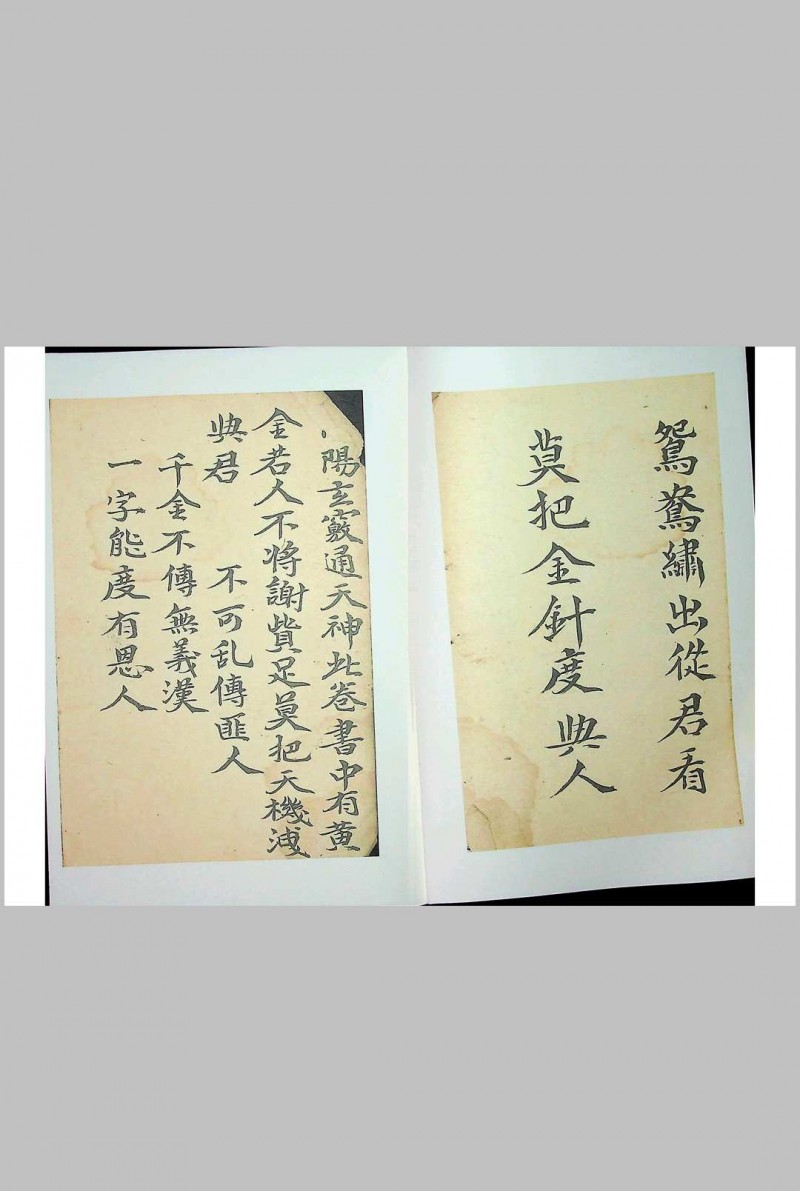 鴛鴦繡出從君看
莫把金針度與人
陽玄竅通天神此卷書中有黃
金若人不將謝貲足莫把天機洩
與君 不可乱傳匪人
千金不傳無義漢
一字能度有恩人